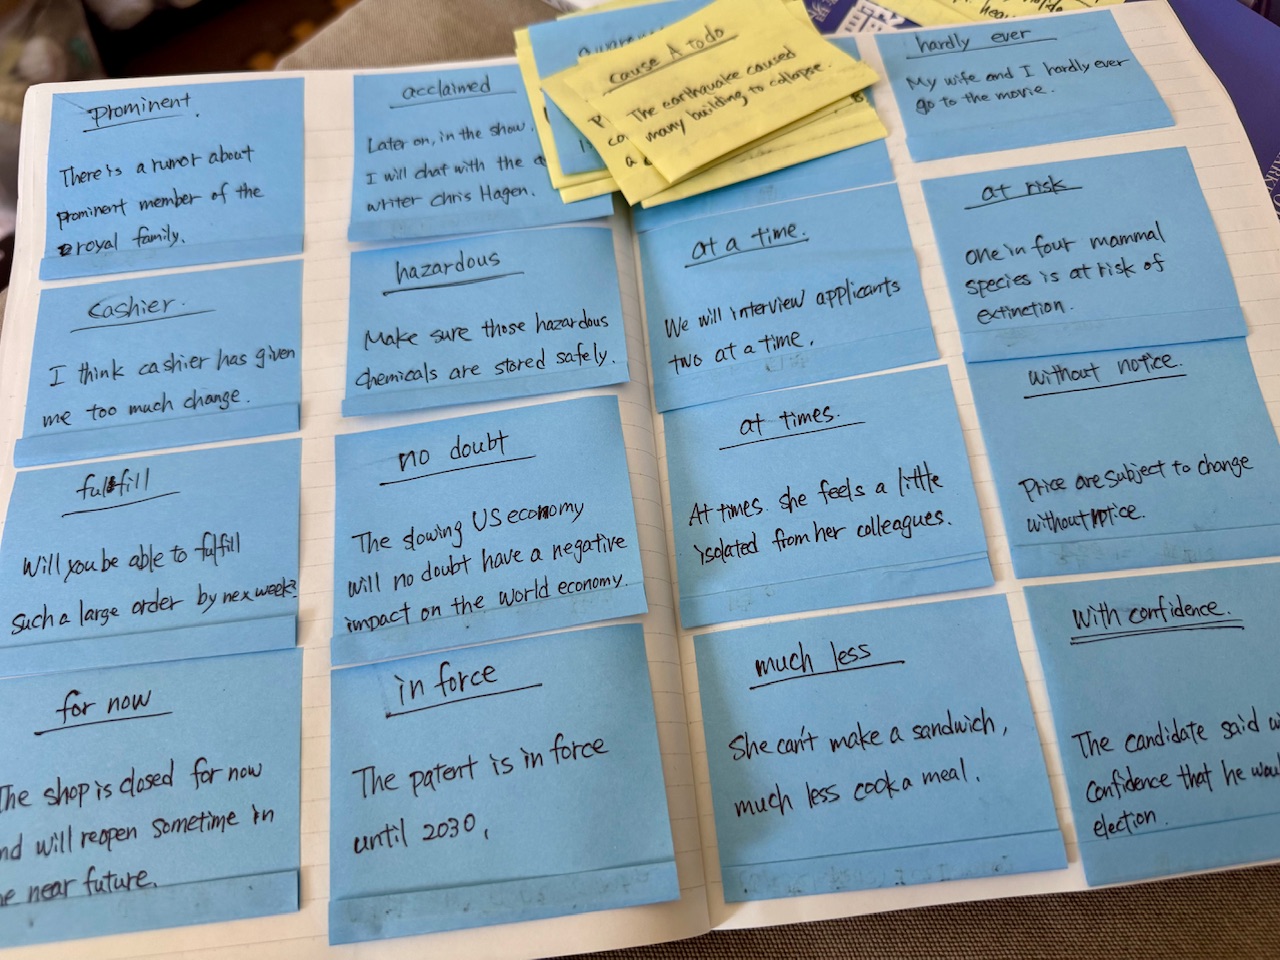 Prominent.
There is a rumor about
prominent member of the
royal family.
cashier.
I think cashier has given
me too much change.
fulfill
Will you be able to fulfill
such a large order by nex week?
for now
The shop is closed for now
and will reopen sometime in
near future.
acclaimed
Later on, in the show.
I will chat with the
writer Chris Hagen.
hazardous
Make sure those hazardous
chemicals are stored safely.
no doubt
The slowing US economy
will no doubt have a negative
impact on the world economy.
in force
The patent is in force
until 2030.
cause A to do
The earthquake caused
many building to collapse.
at a time.
We will interview applicants
two at a time.
at times.
At times. she feels a little
isolated from her colleagues.
much less
She can't make a sandwich,
much less cook a meal.
hardly ever
My wife and I hardly ever
go to the movie.
at risk
One in four mammal
species is at risk of
extinction.
without notice.
Price are subject to change
without notice.
With confidence.
The candidate said
confidence that he
election.